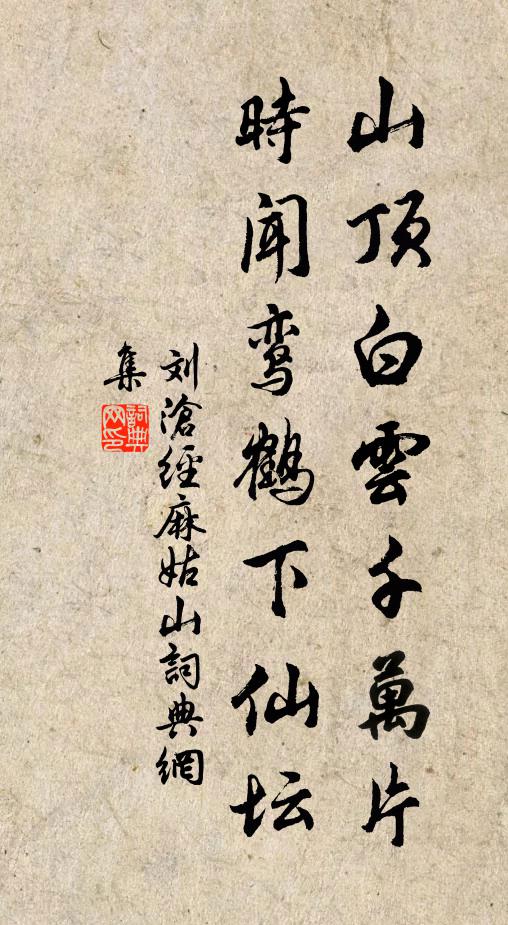 山顶白雲千萬片
時闻鸾鶴下仙坛
刘滄經麻姑山詞典網
集
詞典网印